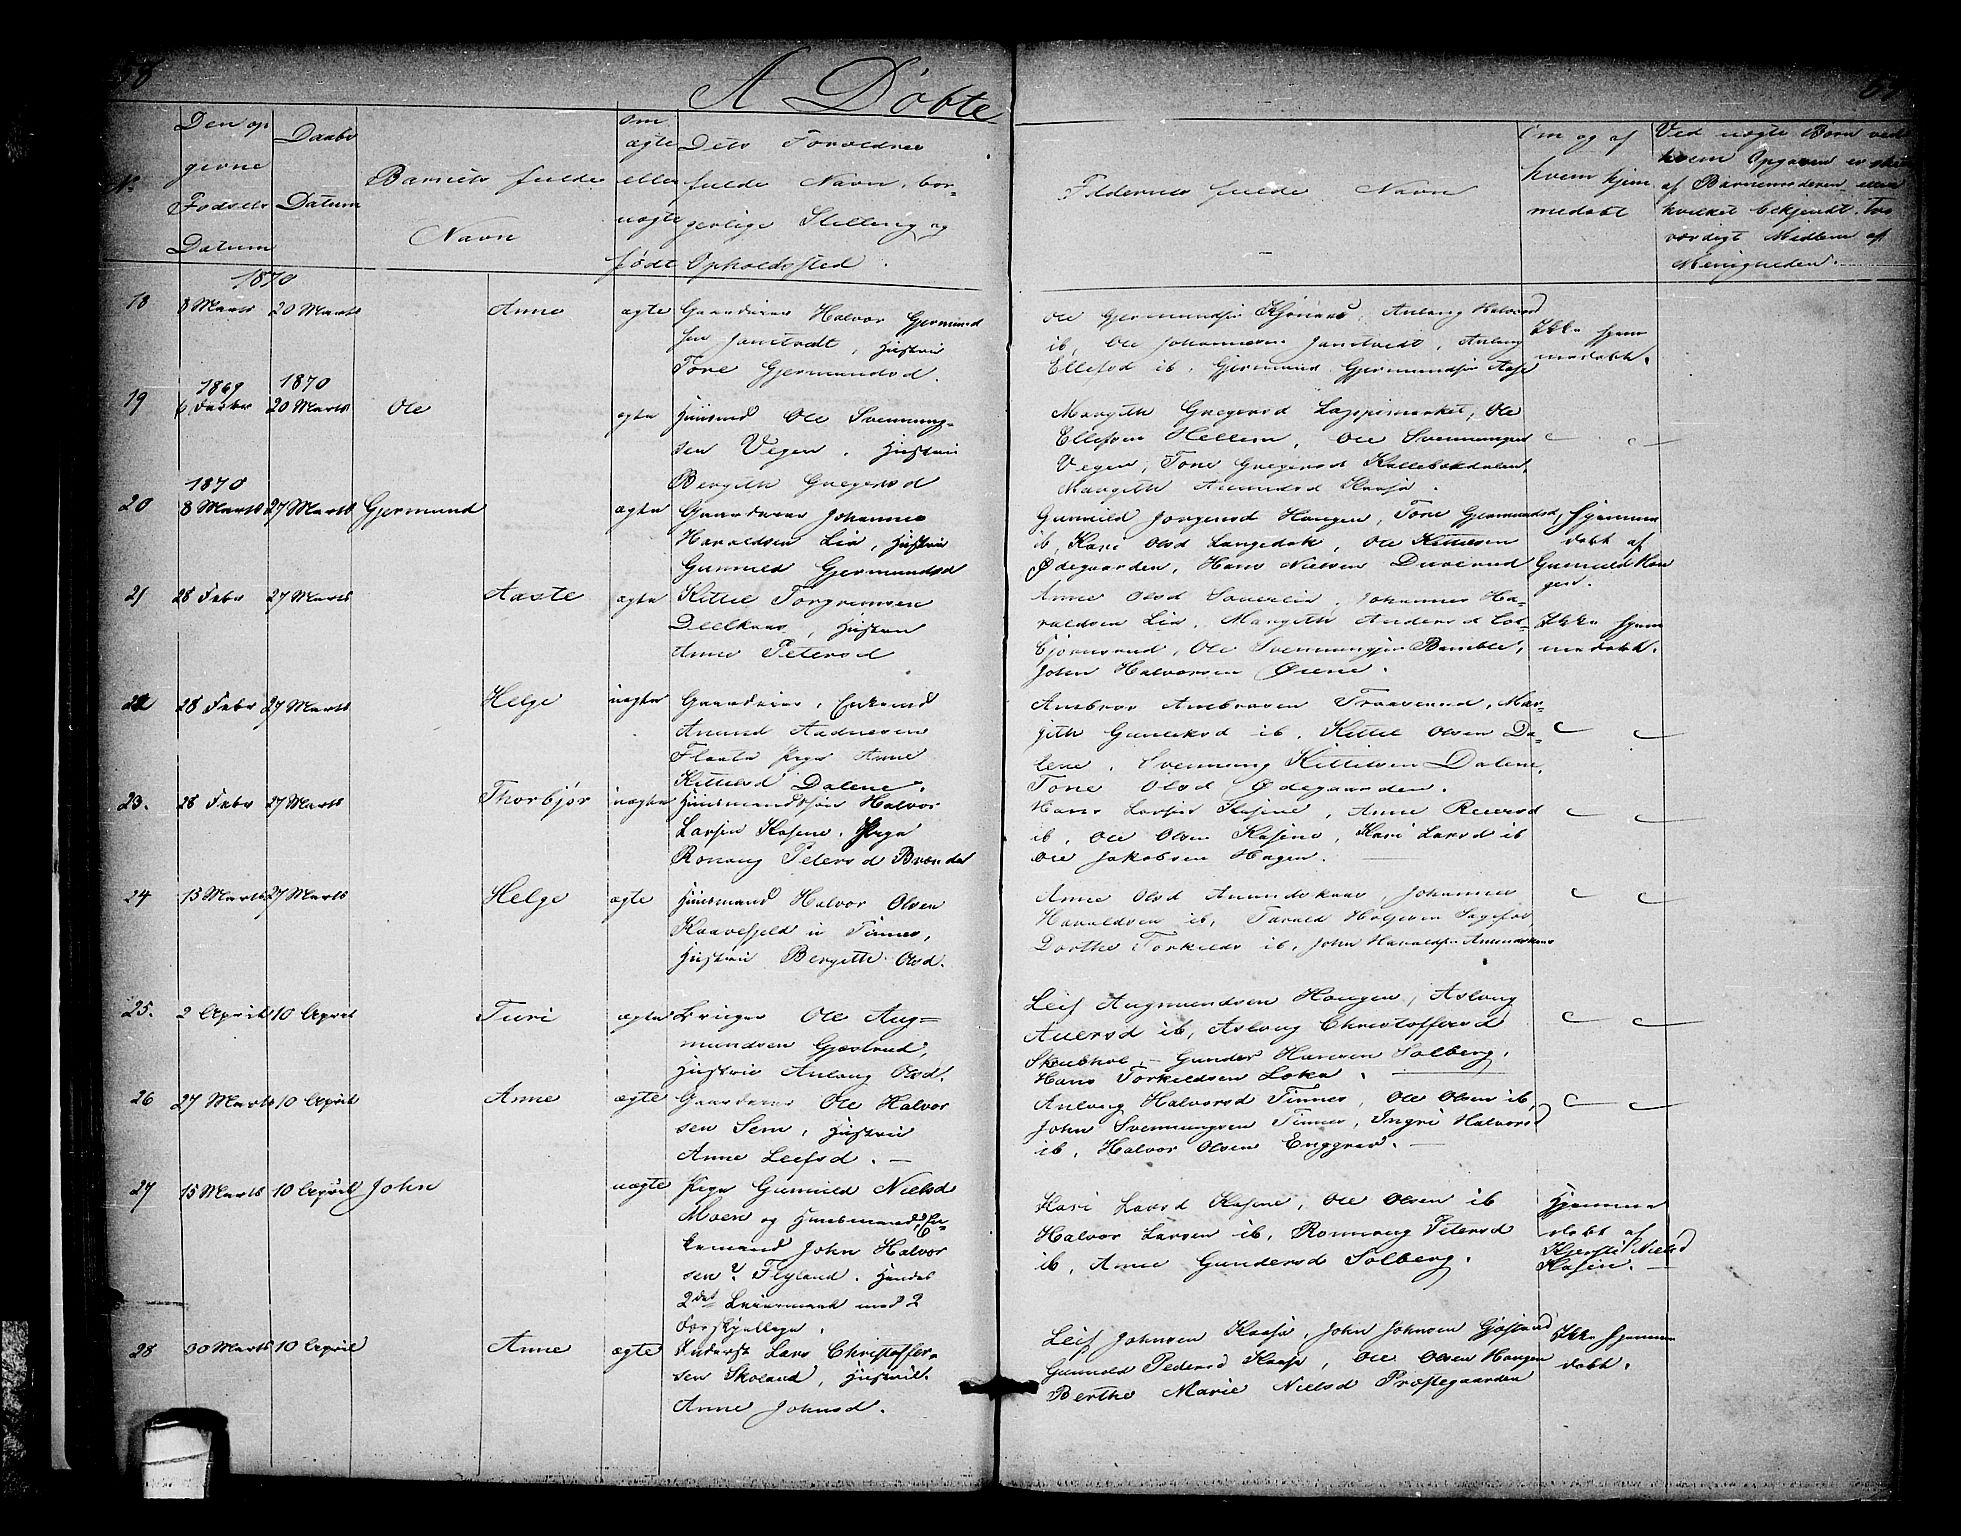 58
A Døbte
No.
Den op
givne
Fødsels
Datum
Daabs
Datum
Barnets fulde
Navn
Om
ægte
eller
uægte
født
Dets Forældres
fulde Navn, bor-
gerlige Stilling og
Opholdssted.
Faddernes fulde Navn
Om og af
hvem hjem
medøbt
Ved uægte Børn ved
hvem Opgaven er skeet
af Barnemoderen eller
hvilket bekjendt tro
værdigt Medlem af
Menigheden.
1870
18 8 Marts 20 Marts Anne ægte Gaardeier Halvor Gjermund
sen Jamtvedt, Hustrue
Tone Gjermundsd.
Ole Gjermundsen Anlaug Halvorsd
ib, Ole Johannesen Jamtvedt, Anlaug
Ellefsd ib, Gjermund Gjermundsen Aase
Ikke hjem
medøbt.
1869 1870
19 20 Marts Ole ægte Huusmd Ole Svennung-
sen Vegen, Hustrue
Bergith Gregersd
Margith Gregersd Ole
Ellefsen Hellem, Ole Svennungsen
Vegen, Tone Gregersd
Margith Amundsd Kaasa.
1870
20 8 Marts 27 Marts Gjermund ægte Gaardeier Johannes
Haraldsen Lia, Hustrue
Gunnild Gjermundsd
Gunnild Jørgensd Haugen, Tone Gjermundsd,
ib, Kari Olsd Langedok, Ole Kittilsen
Ødegaarden, Hans Nielsen
Hjemme
døbt af
Gunnild Hau
gen.
21 28 Febr 27 Marts Aaste ægte Kittil Torgrimsen
Hustru
Anne Petersd
Anne Olsd Johannes Ha-
raldsen Lia, Margith Andersd
Ole Svennungsen Bamble,
John Halvorsen
Ikke hjem
medøbt.
22 28 Febr 27 Marts Helge uægte Gaardeier, Enkemd
Amund Aadnesen
Flaata Pige Anne
Kittilsd Dalene.
Ambros Ambrosen Mar-
gith Gunleksd ib, Kittil Olsen Da-
lene, Svennung Kittilsen Dalene,
Tone Olsd Ødegaarden.
23. 28 Febr 27 Marts Thorbjør uægte Huusmandssøn Halvor
Larsen Kasene. Pige
Ronnaug Petersd
Hans Larsen Kasene, Anne Reiersd
ib, Ole Olsen Kasene, Kari Larsd ib
Ole Jakobsen Hagen.
24 13 Marts 27 Marts Helge ægte Huusmand Halvor Olsen
Kaavefjeld u Tinnes,
Hustrue Bergith Olsd.
Anne Olsd Amundskaas Johannes
Haraldsen ib, Tarald Helgesen
Dorthe Torkildsd ib, John Haraldsen Amundskaas
25. 2 April 10 April Turi ægte Bruger Ole Aug-
mundsen Gjøstrud,
Hustrue Anlaug Olsd.
Leif Augmundsen Haugen, Aslaug
ib, Aslaug Christoffersd
Gunder Hansen Solberg,
Hans Torkildsen Loka.
26 27 Marts 10 April Anne ægte Gaardeier Ole Halvor
sen Sem, Hustrue
Anne Leifsd.
Anlaug Halvorsd Tinnes, Ole Olsen ib,
John Svennungsen Tinnes, Ingri Halvorsd
ib, Halvor Olsen Enggrav.
27 15 Marts 10 April John uægte Pige Gunnild Nielsd
Moen og Huusmand, En-
kemand John Halvor
sen? Flyland. Hendes
2det Leiermaal med 2
forskjellige.
Kari Larsd Kasene, Ole Olsen ib
Halvor Larsen ib, Ronnaug Petersd
ib, Anne Gundersd Solberg.
Hjemme
døbt af
Kjersti Nielsd
Kasin.
28 30 Marts 10 April Anne ægte Inderst Lars Christoffer-
sen Skoland, Hustrue
Anne Johnsd.
Leif Johnsen Kaasa, John Johnsen
Gunnild Pedersd Kaasa, Ole Olsen Haugen
Berthe Marie Nielsd Præstegaarden
Ikke hjemme
døbt.